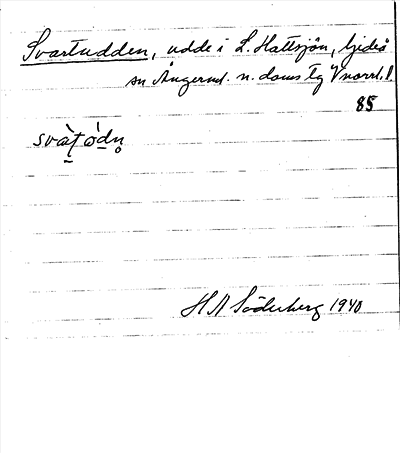 Svartudden, udde i L. Hattsjön, Gideå
sn Ångerml. n. doms tg Vnorrl. l.
85
H A Söderberg 1940